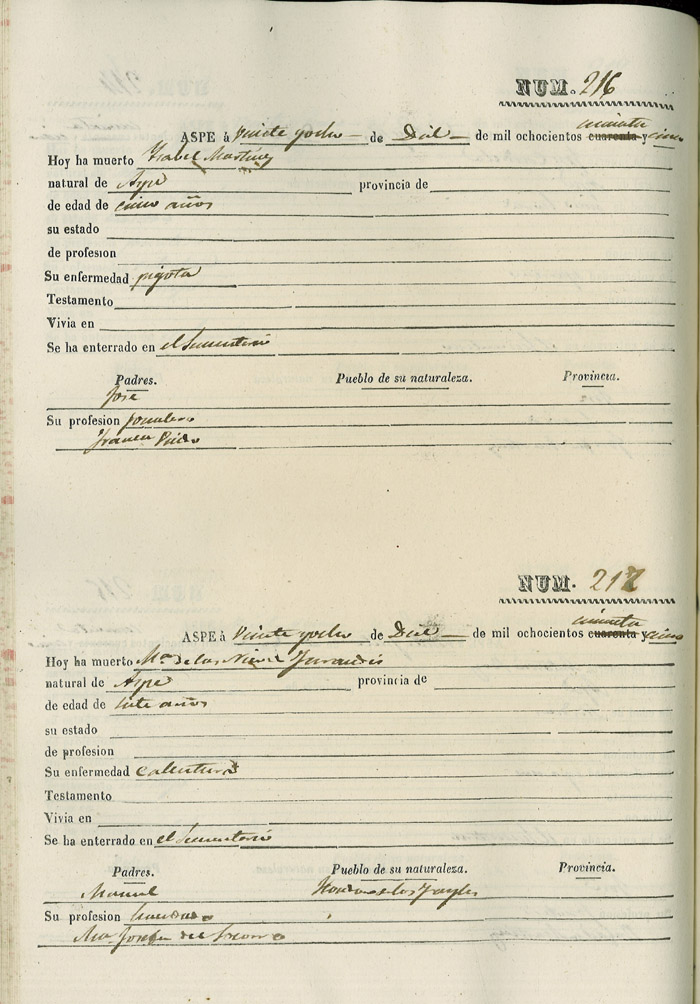 NUM. 216
cincuenta
ASPE á veinte y ocho de de mil ochocientos cuarenta y cinco
Hoy ha muerto Isabel Martinez
natural de Aspe provincia de
de edad de cinco años
su estado
de profesion
Su enfermedad
Testamento
Vivia en
Se ha enterrado en el Sementerio
Padres. Pueblo de su naturaleza. Provincia.
José
Su profesion Jornalero
NUM. 217
cincuenta
ASPE á veinte y ocho de de mil ochocientos cuarenta y cinco
Hoy ha muerto Mª de las Nieves
natural de Aspe provincia de
de edad de siete años
su estado
de profesion
Su enfermedad calentura
Testamento
Vivia en
Se ha enterrado en el Sementerio
Padres. Pueblo de su naturaleza. Provincia.
Manuel Hondon de los Frayles
Su profesion
Mª Josefa del